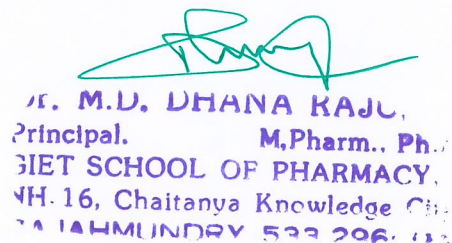 Dr. M.D. DHANA RAJU,
Principal. M,Pharm., Ph.
GIET SCHOOL OF PHARMACY,
NH-16, Chaitanya Knowledge
RAJAHMUNDRY 533 296,